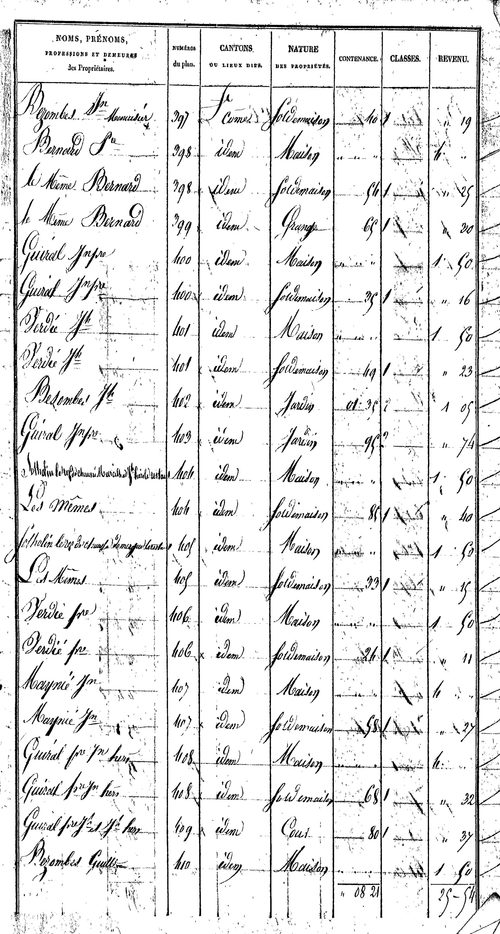 NOMS, PRÉNOMS, PROFESSIONS ET DEMEURES des Propriétaires. NUMÉROS du plan. CANTONS OU LIEUX DITS. NATURE DES PROPRIÉTÉS. CONTENANCE. CLASSES. REVENU.
Bezombes Jn 397 Soldemaison 40 1 " 19
Bernard 398 idem Maison " " " 6 "
le Même Bernard 398 idem Soldemaison 54 1 " 25
le Même Bernard 399 idem Grange 65 1 " 30
Guiral Jn fre 400 idem Maison " " " 1 50
Guiral Jn fre 400 idem Soldemaison 35 1 " 16
Verdié Jh 401 idem Maison 1 50
Verdié Jh 401 idem Soldemaison 49 1 " 23
Besombes Jh 402 idem Jardin 01 35 2 1 05
Guiral Jn fre 403 idem Jardin 95 2 " 74
404 idem Maison 1 50
Les Mêmes 404 idem Soldemaison 85 1 " 40
405 idem Maison 1 50
Les Mêmes 405 idem Soldemaison 33 1 " 15
Verdié fre 406 idem Maison 1 50
Verdié fre 406 idem Soldemaison 24 1 " 11
Maynié Jn 407 idem Maison 6
Maynié Jn 407 idem Soldemaison 58 1 " 27
Guiral fre Jn hers 408 idem Maison 6
Guiral fre Jn hers 408 idem Soldemaison 68 1 " 32
Guiral fre Jn et hers 409 idem Cour 80 1 " 37
Bezombes Guill 410 idem Maison 1 50
" 08 21 35-54